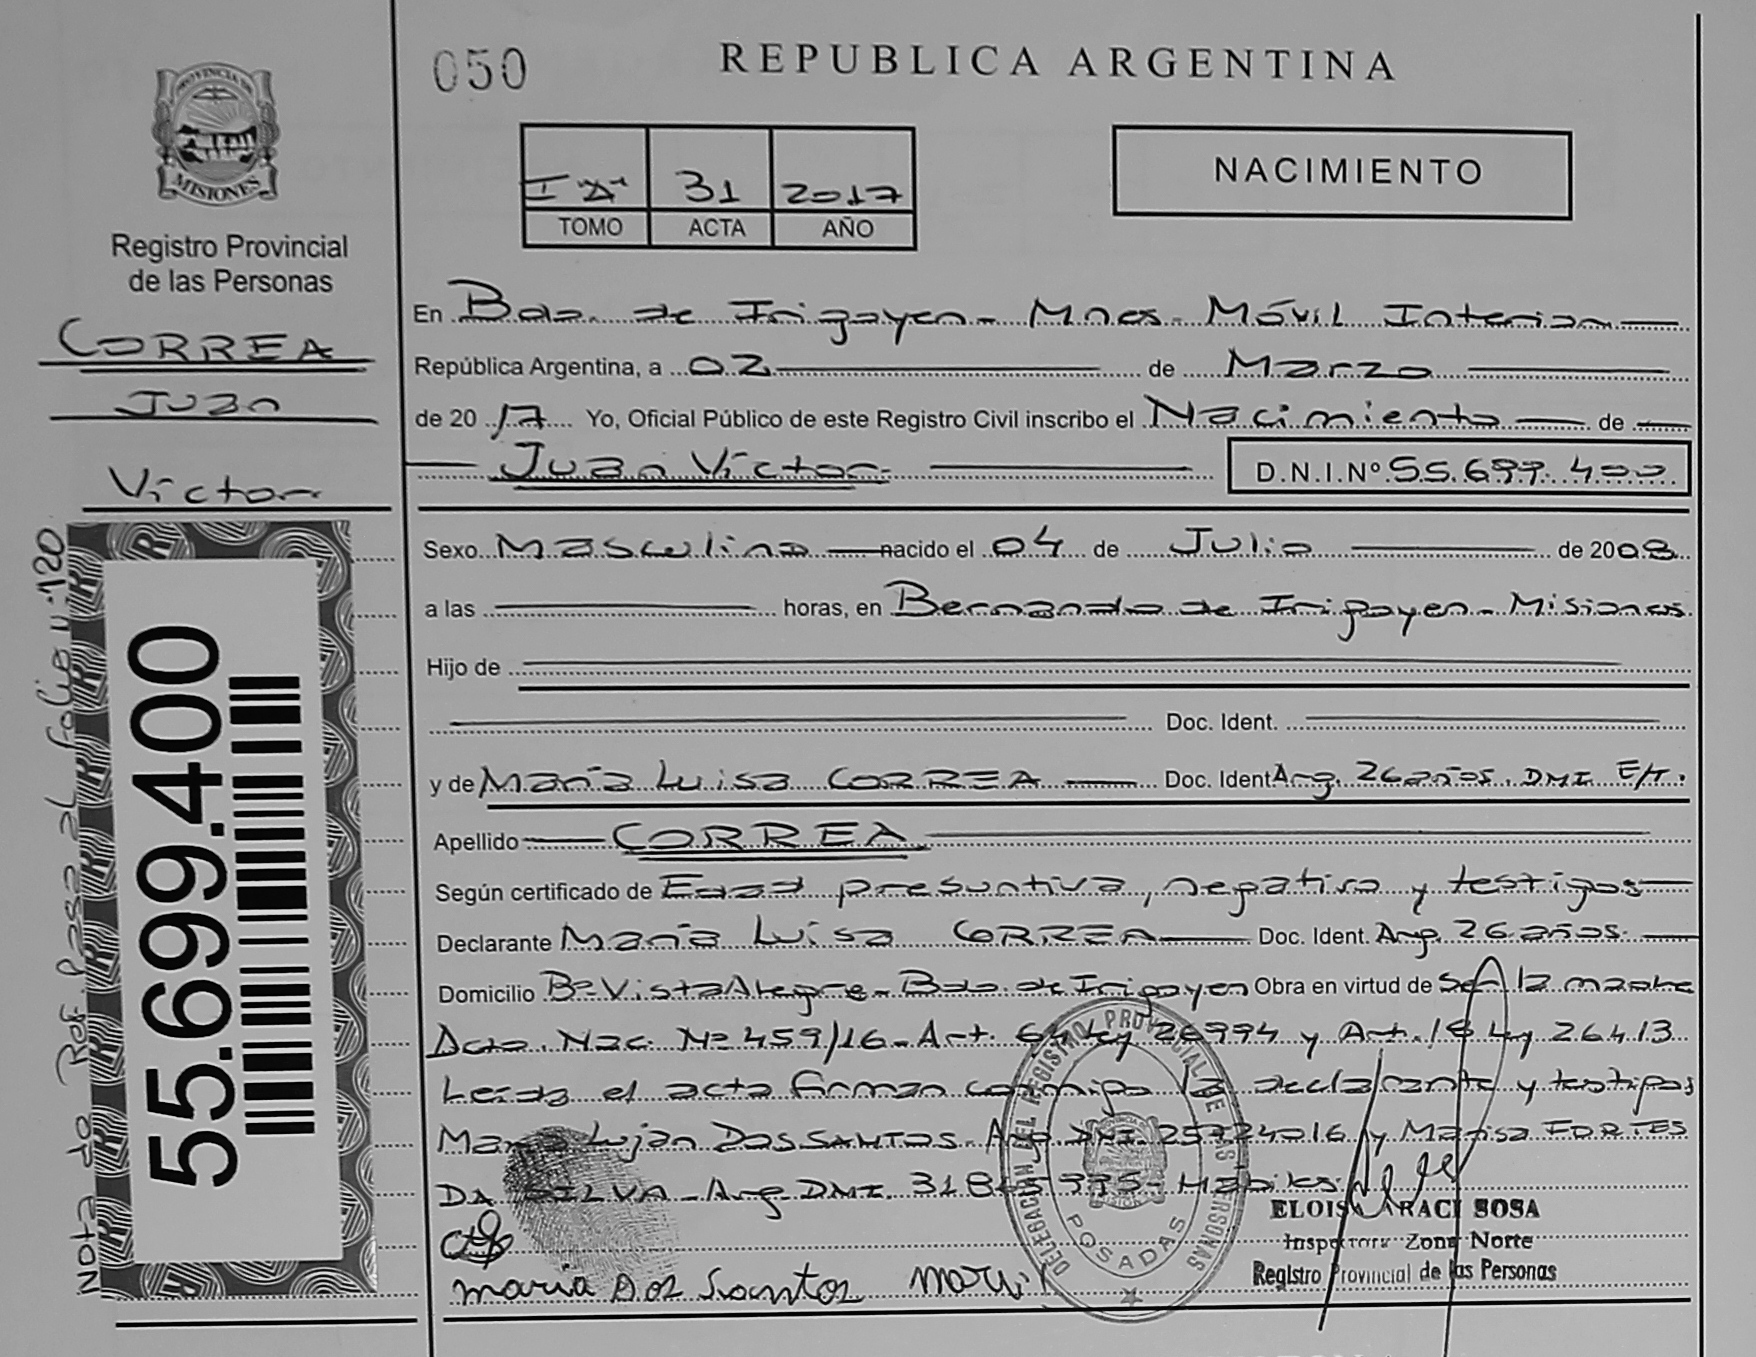 050
REPUBLICA ARGENTINA
PROVINCIA DE
MISIONES
Registro Provincial
de las Personas
CORREA
Juan
Victor
31 2017
TOMO ACTA AÑO
NACIMIENTO
En Bdo. de Irigoyen - Mnes. Móvil Interior
República Argentina, a 02 de Marzo
de 2017 Yo, Oficial Público de este Registro Civil inscribo el Nacimiento de
Juan Victor.
D.N.I.Nº 55.699.400
Sexo Masculino nacido el 04 de Julio de 2008
a las horas, en Bernardo de Irigoyen - Misiones
Hijo de
Doc. Ident.
y de María Luisa CORREA Doc. Ident Arg. 26 años. DNI E/T.
Apellido CORREA
Según certificado de Edad presuntiva, negativo y testigos
Declarante María Luisa CORREA Doc. Ident. Arg. 26 años.
Domicilio Bº Vista Alegre - Bdo. de Irigoyen Obra en virtud de ser la madre
Acta. Nac. Nº 459/16 - Art. 64 Ley 26994 y Art. 18 Ley 26413
Leida el acta firman conmigo la declarante y testigos
Maria Lujan DOS SANTOS - Arg DNI. 25724016 y Marisa FORTES
DA SILVA - Arg DNI. Habiles
maria Dos Santos
DELEGACION DEL REGISTRO PROVINCIAL DE LAS PERSONAS
POSADAS
ELOISA ARACI SOSA
Inspectora Zona Norte
Registro Provincial de las Personas
55.699.400
Nota de Ref. pasa al folio Nº 120